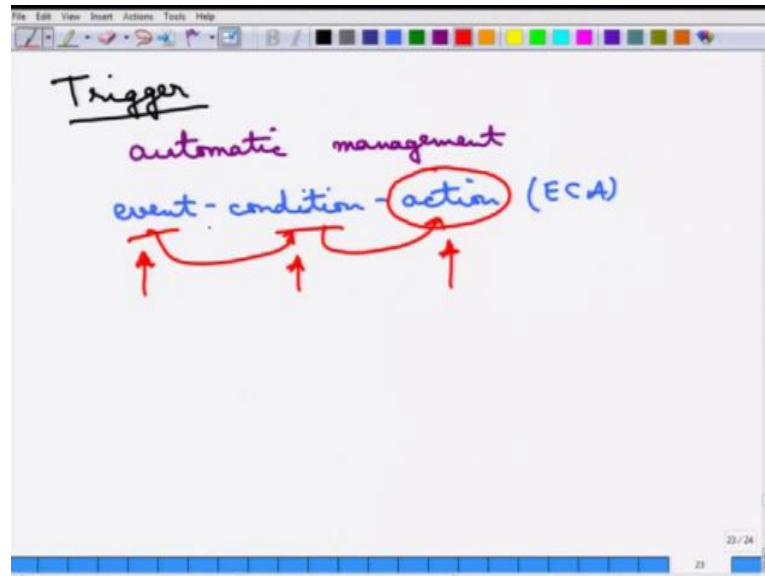 File Edit View Insert Actions Tools Help
B I
Trigger
automatic management
event - condition - action (ECA)
23/24
23